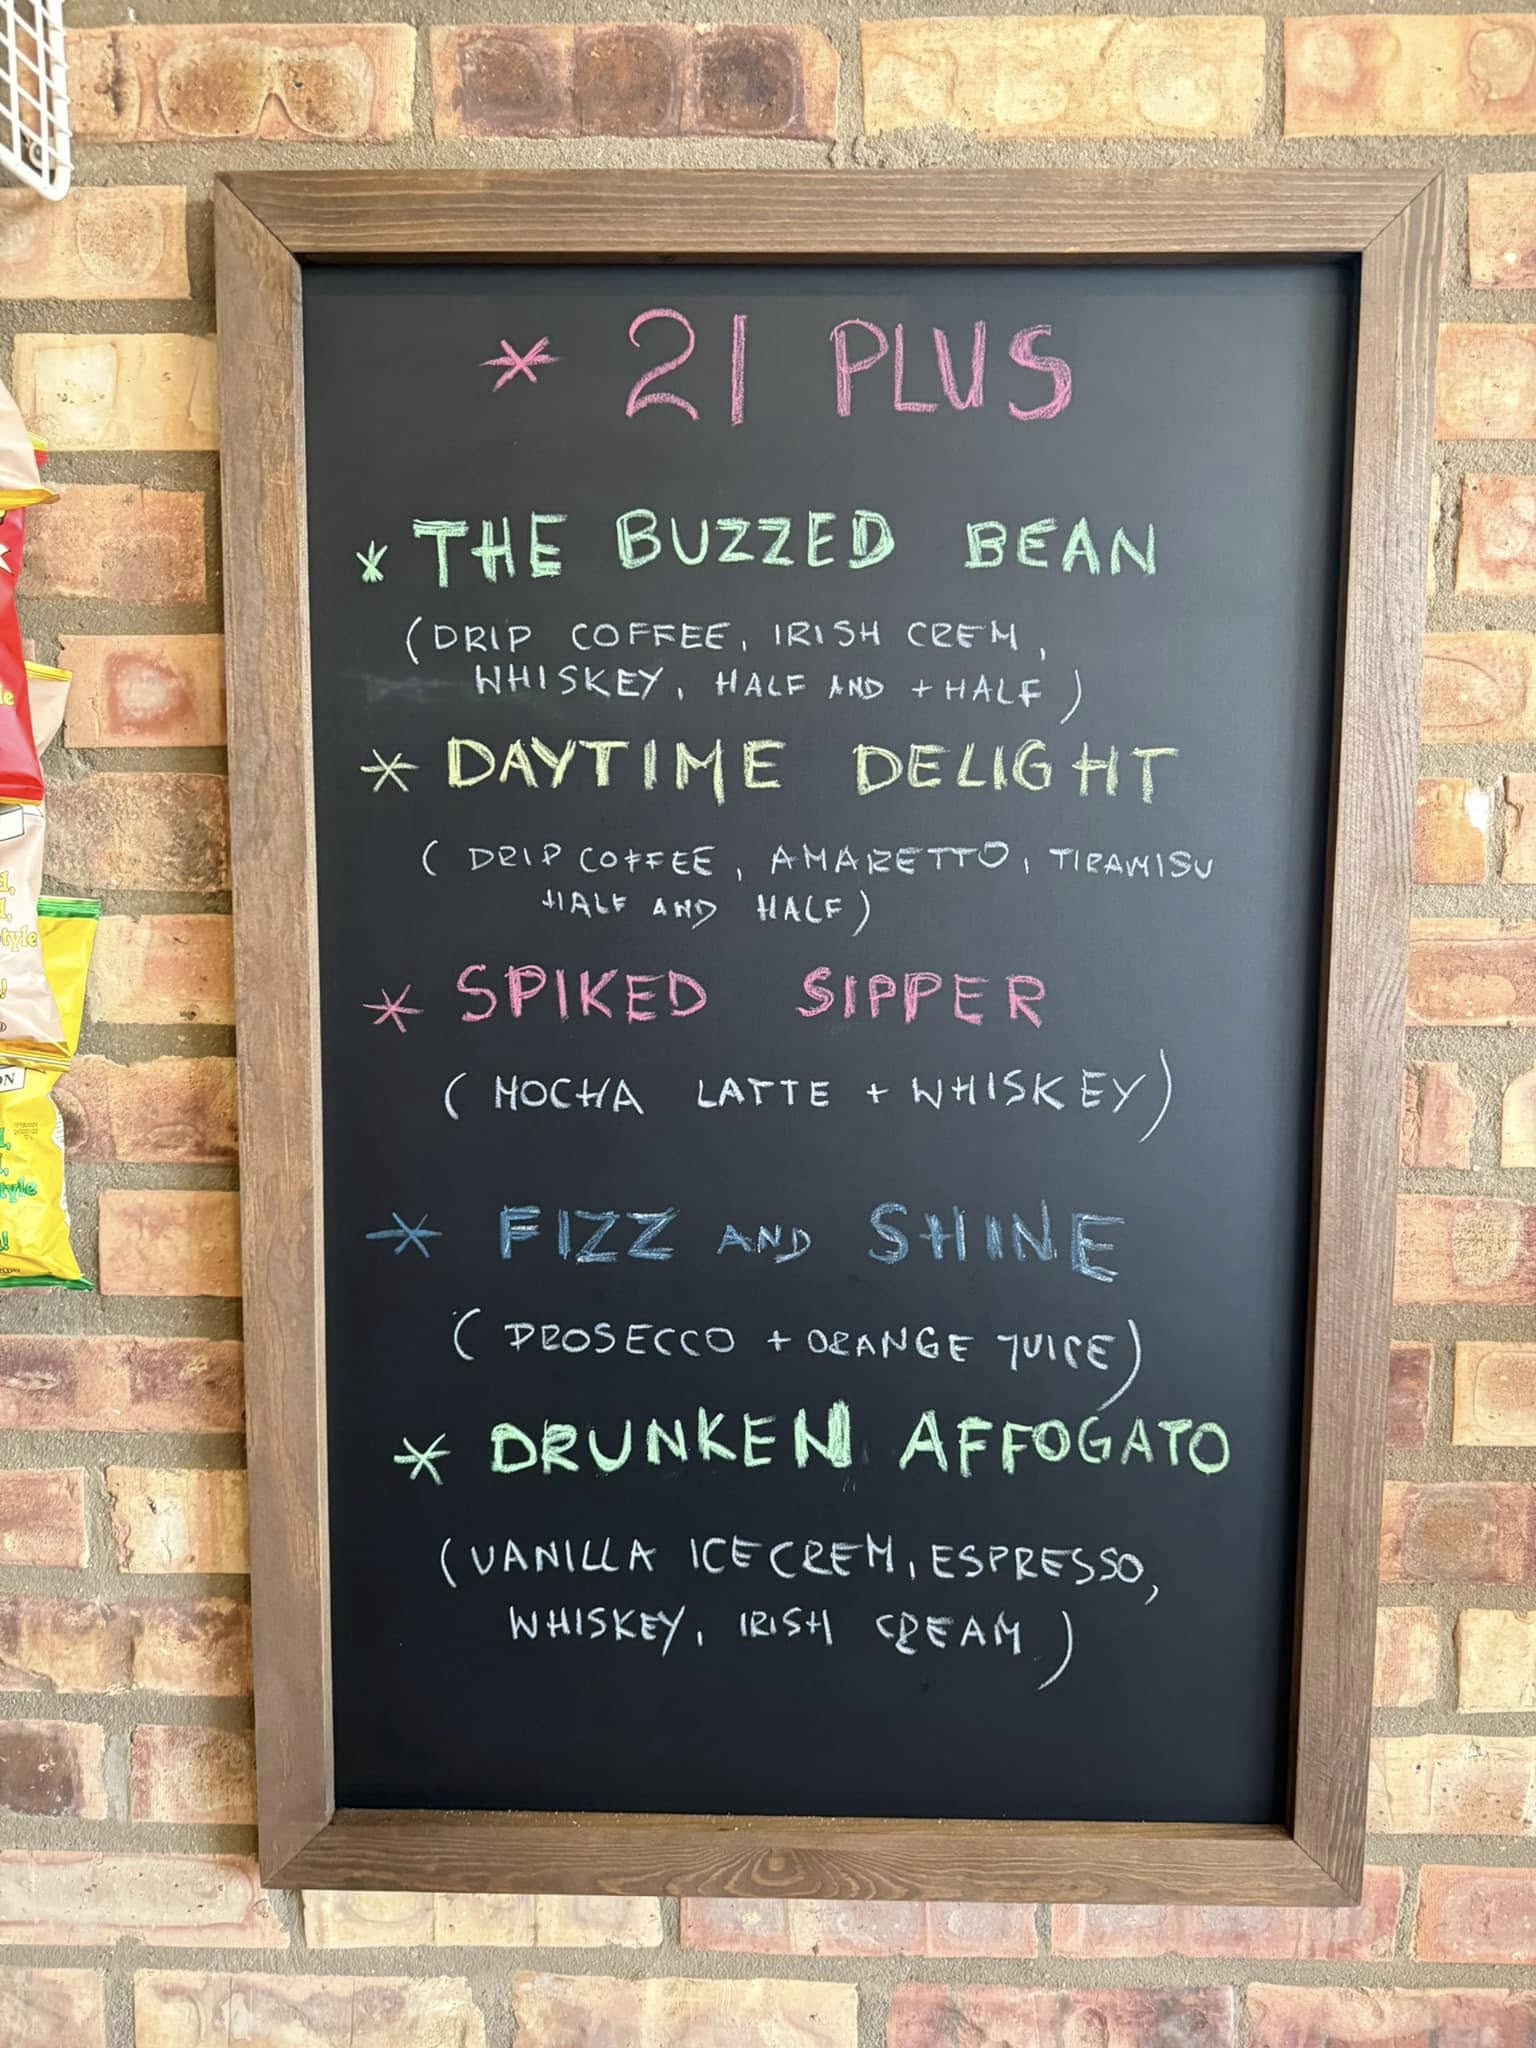 * 21 PLUS
* THE BUZZED BEAN
(DRIP COFFEE, IRISH CREM,
WHISKEY, HALF AND + HALF)
* DAYTIME DELIGHT
( DRIP COFFEE, AMARETTO, TIRAMISU
HALF AND HALF)
* SPIKED SIPPER
( MOCHA LATTE + WHISKEY)
* FIZZ AND SHINE
( PROSECCO + ORANGE JUICE)
* DRUNKEN AFFOGATO
(VANILLA ICE CREM, ESPRESSO,
WHISKEY, IRISH CREAM)